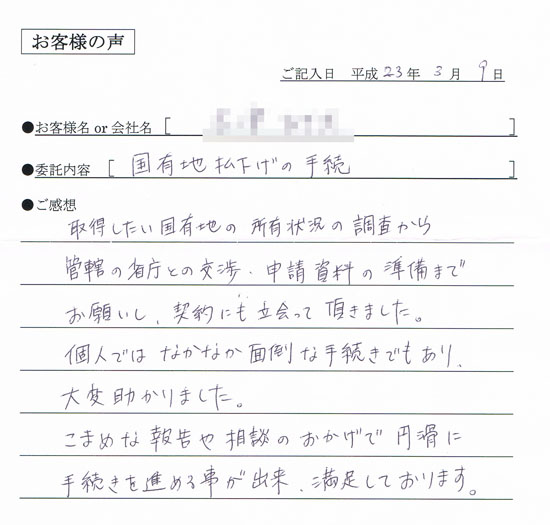 お客様の声
ご記入日 平成 23年 3月 9日
●お客様名 or 会社名 [ ]
●委託内容 [ 国有地払下げの手続 ]
●ご感想
取得したい国有地の所有状況の調査から
管轄の省庁との交渉・申請資料の準備まで
お願いし、契約にも立会って頂きました。
個人ではなかなか面倒な手続きでもあり、
大変助かりました。
こまめな報告や相談のおかげで円滑に
手続きを進める事が出来、満足しております。